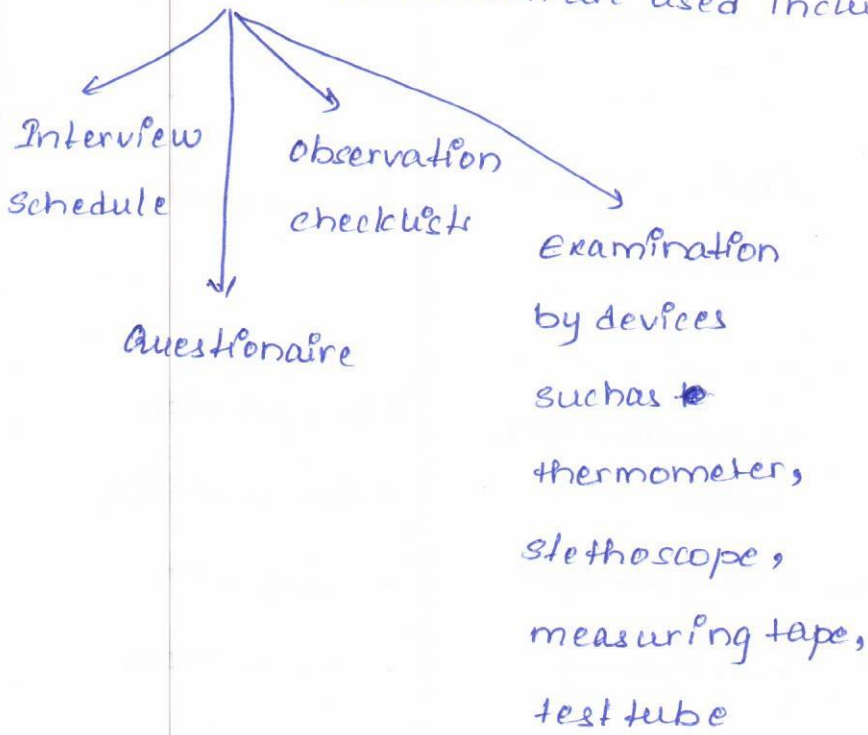 used inclu
Interview
schedule
Observation
checklists
Questionaire
Examination
by devices
suchas
thermometer,
stethoscope,
measuring tape,
test tube